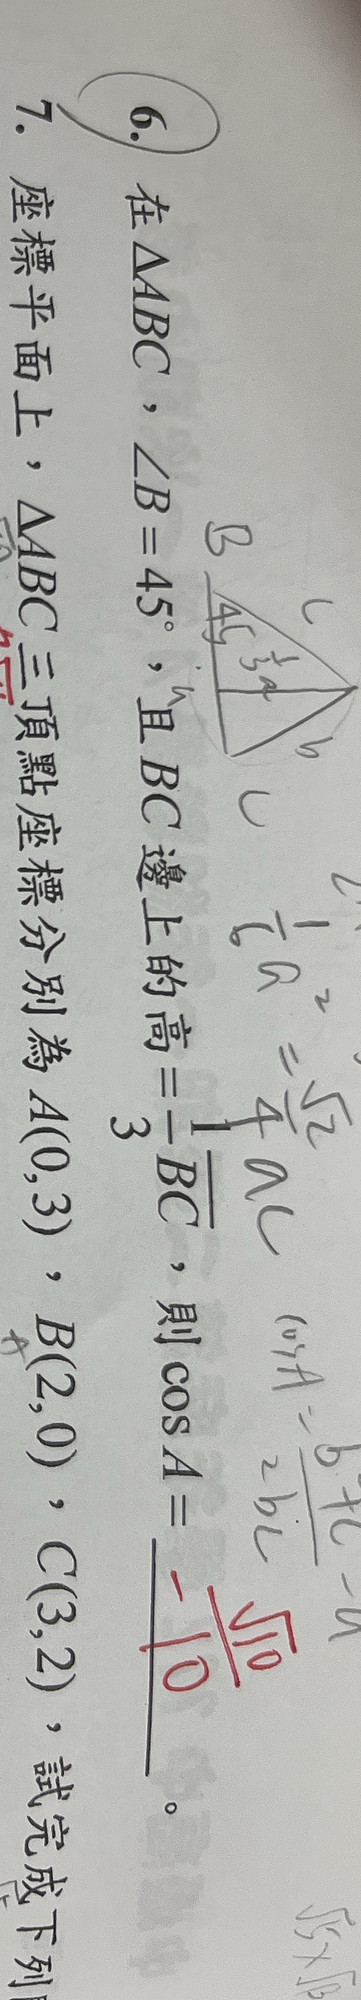 6. 在 ΔABC，∠B = 45°，且 BC 邊上的高 = 1/3 BC，則 cos A = -√10/10。
B
45
1/3 a
c
b
C
h
1/6 a² = √2/4 ac
cosA = b² + c² - a / 2bc
7. 座標平面上，ΔABC 三頂點座標分別為 A(0,3)，B(2,0)，C(3,2)，試完成下列